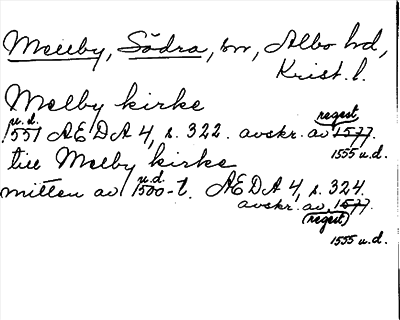 Mellby, Södra, sn, Albo hd,
Krist. l.
Melby kirke
u.d. regest
1551 ÆDA 4, s. 322. avskr. av 1577.
1555 u.d.
till Melby kirke
u.d.
mitten av 1500-t. ÆDA 4, s. 324.
avskr. av. 1577.
(regest)
1555 u.d.